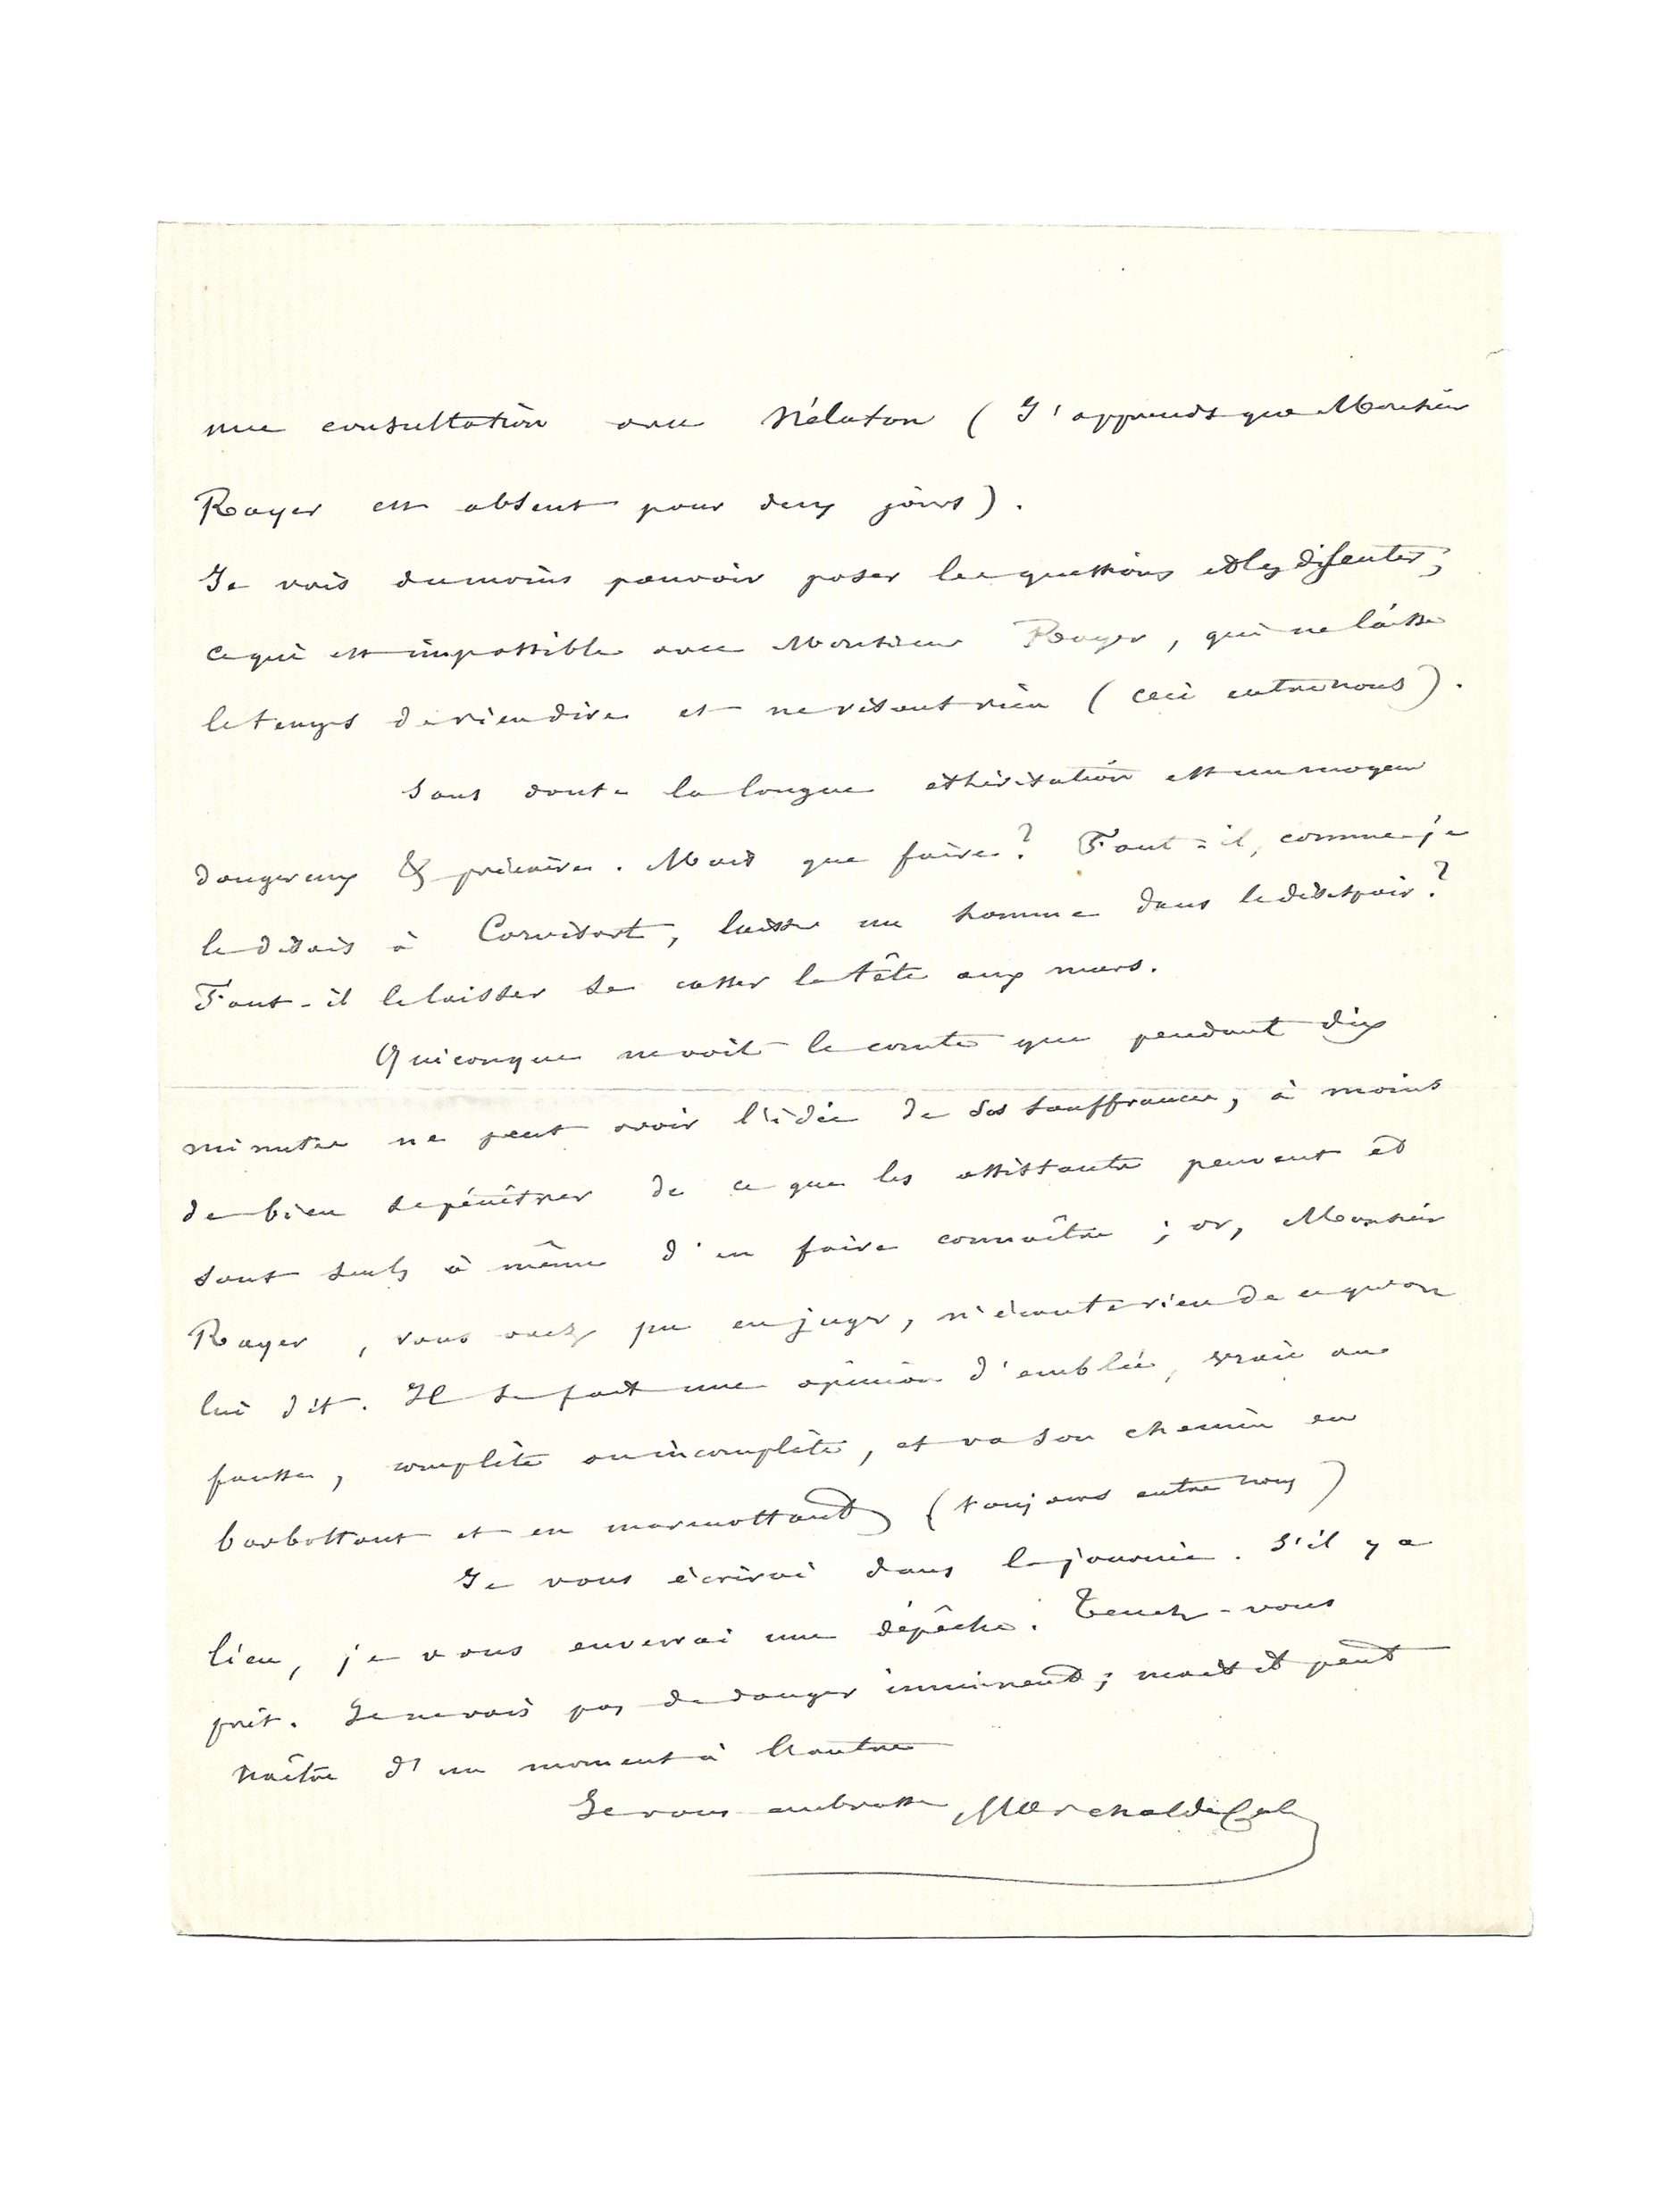 une consultation avec Nélaton (J'apprends que Monsieur
Rayer est absent pour deux jours).
Je vais du moins pouvoir poser les questions et les discuter,
ce qui est impossible avec Monsieur Rayer, qui ne laisse
le temps de rien dire et ne résout rien (ceci entre nous).
Sans doute la longue éthérisation est un moyen
dangereux & précaire. Mais que faire? Faut-il, comme je
le disais à Corvisart, laisser un homme dans le désespoir?
Faut-il le laisser se casser la tête aux murs.
Quiconque ne voit le comte que pendant dix
minutes ne peut avoir l'idée de ses souffrances, à moins
de bien se pénétrer de ce que les assistants peuvent et
sont seuls à même d'en faire connaître ; or, Monsieur
Rayer, vous avez pu en juger, n'écoute rien de ce qu'on
lui dit. Il se fait une opinion d'emblée, vraie ou
fausse, complète ou incomplète, et va son chemin en
barbottant et en marmottant (toujours entre nous)
Je vous écrirai dans la journée. S'il y a
lieu, je vous enverrai une dépêche. Tenez-vous
prêt. Je ne vois pas de danger imminent; mais il peut
naître d'un moment à l'autre
Je vous embrasse Marchal de Cal